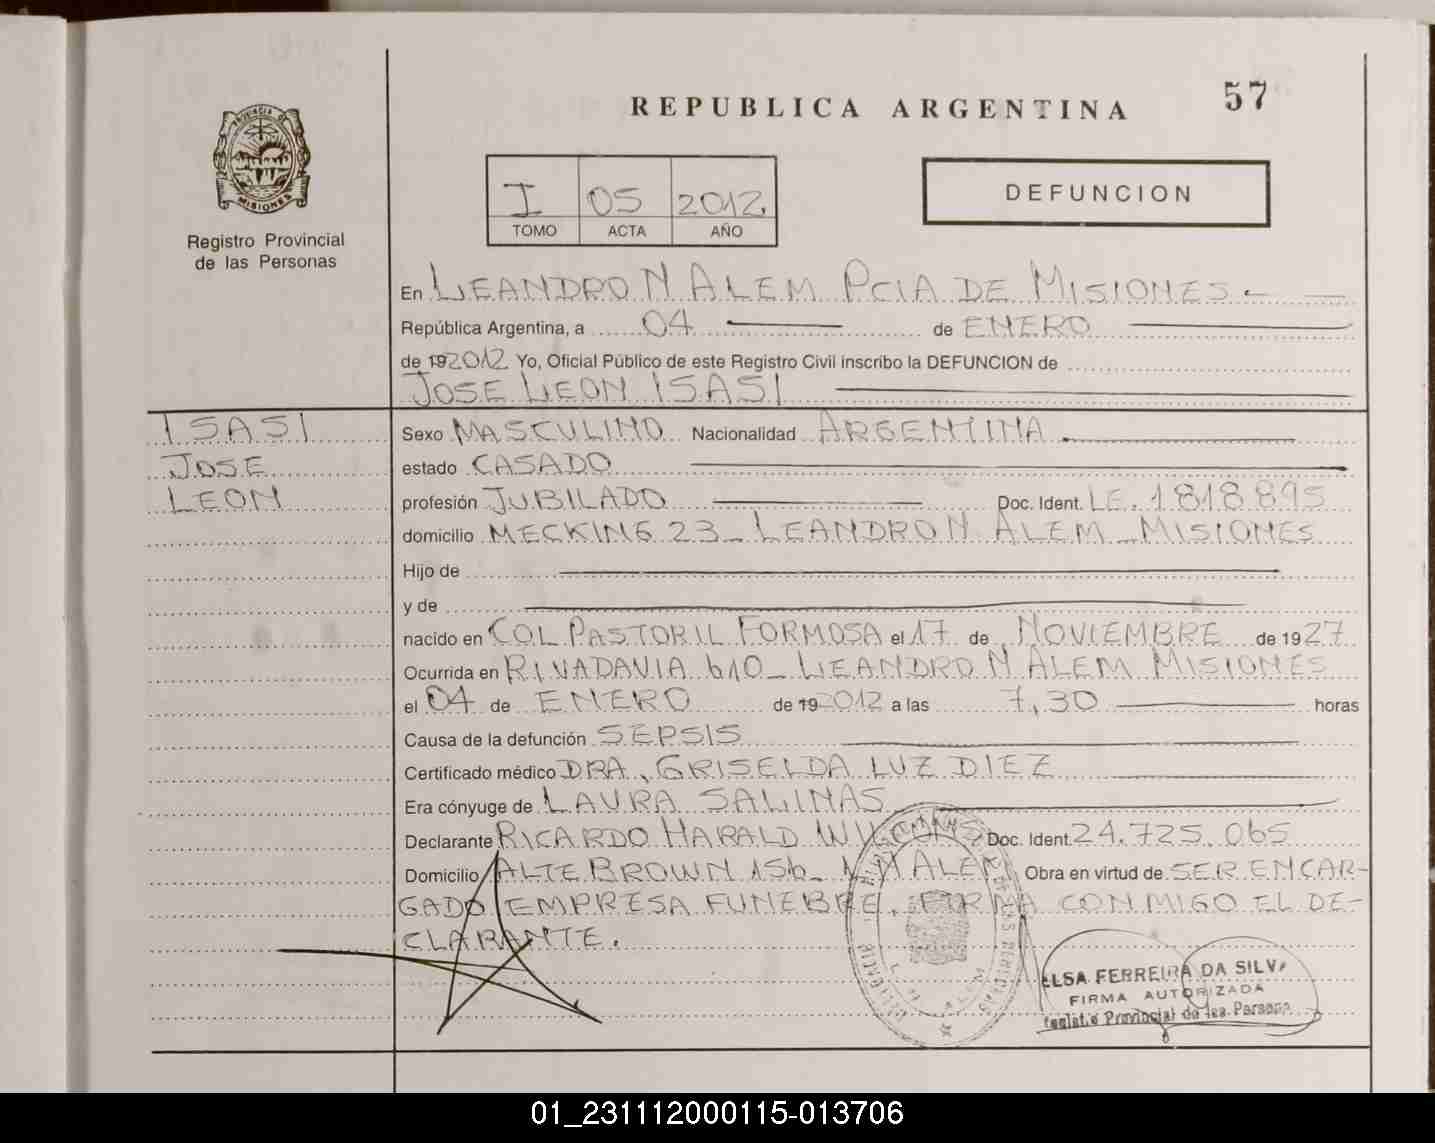 REPUBLICA ARGENTINA
57
PROVINCIA DE
MISIONES
Registro Provincial
de las Personas
I 05 2012
TOMO ACTA AÑO
DEFUNCION
En LEANDRO N ALEM PCIA DE MISIONES.-
República Argentina, a 04 de ENERO
de 192012 Yo, Oficial Público de este Registro Civil inscribo la DEFUNCION de
JOSE LEON ISASI
ISASI
JOSE
LEON
Sexo MASCULINO Nacionalidad ARGENTINA
estado CASADO
profesión JUBILADO Doc. Ident. LE. 1818895
domicilio MECKING 23_ LEANDRO N ALEM _ MISIONES
Hijo de
y de
nacido en COL PASTORIL FORMOSA el 17 de NOVIEMBRE de 1927
Ocurrida en RIVADAVIA 610_ LEANDRO N ALEM MISIONES
el 04 de ENERO de 192012 a las 7,30 horas
Causa de la defunción SEPSIS
Certificado médico DRA, GRISELDA LUZ DIEZ
Era cónyuge de LAURA SALINAS
Declarante RICARDO HARALD Doc. Ident. 24.725.065
Domicilio ALTE BROWN 156_ L N ALEM Obra en virtud de SER ENCAR-
GADO EMPRESA FUNEBRE. FIRMA CONMIGO EL DE-
CLARANTE.
ELSA FERREIRA DA SILVA
FIRMA AUTORIZADA
Registro Provincial de las Personas
01_231112000115-013706